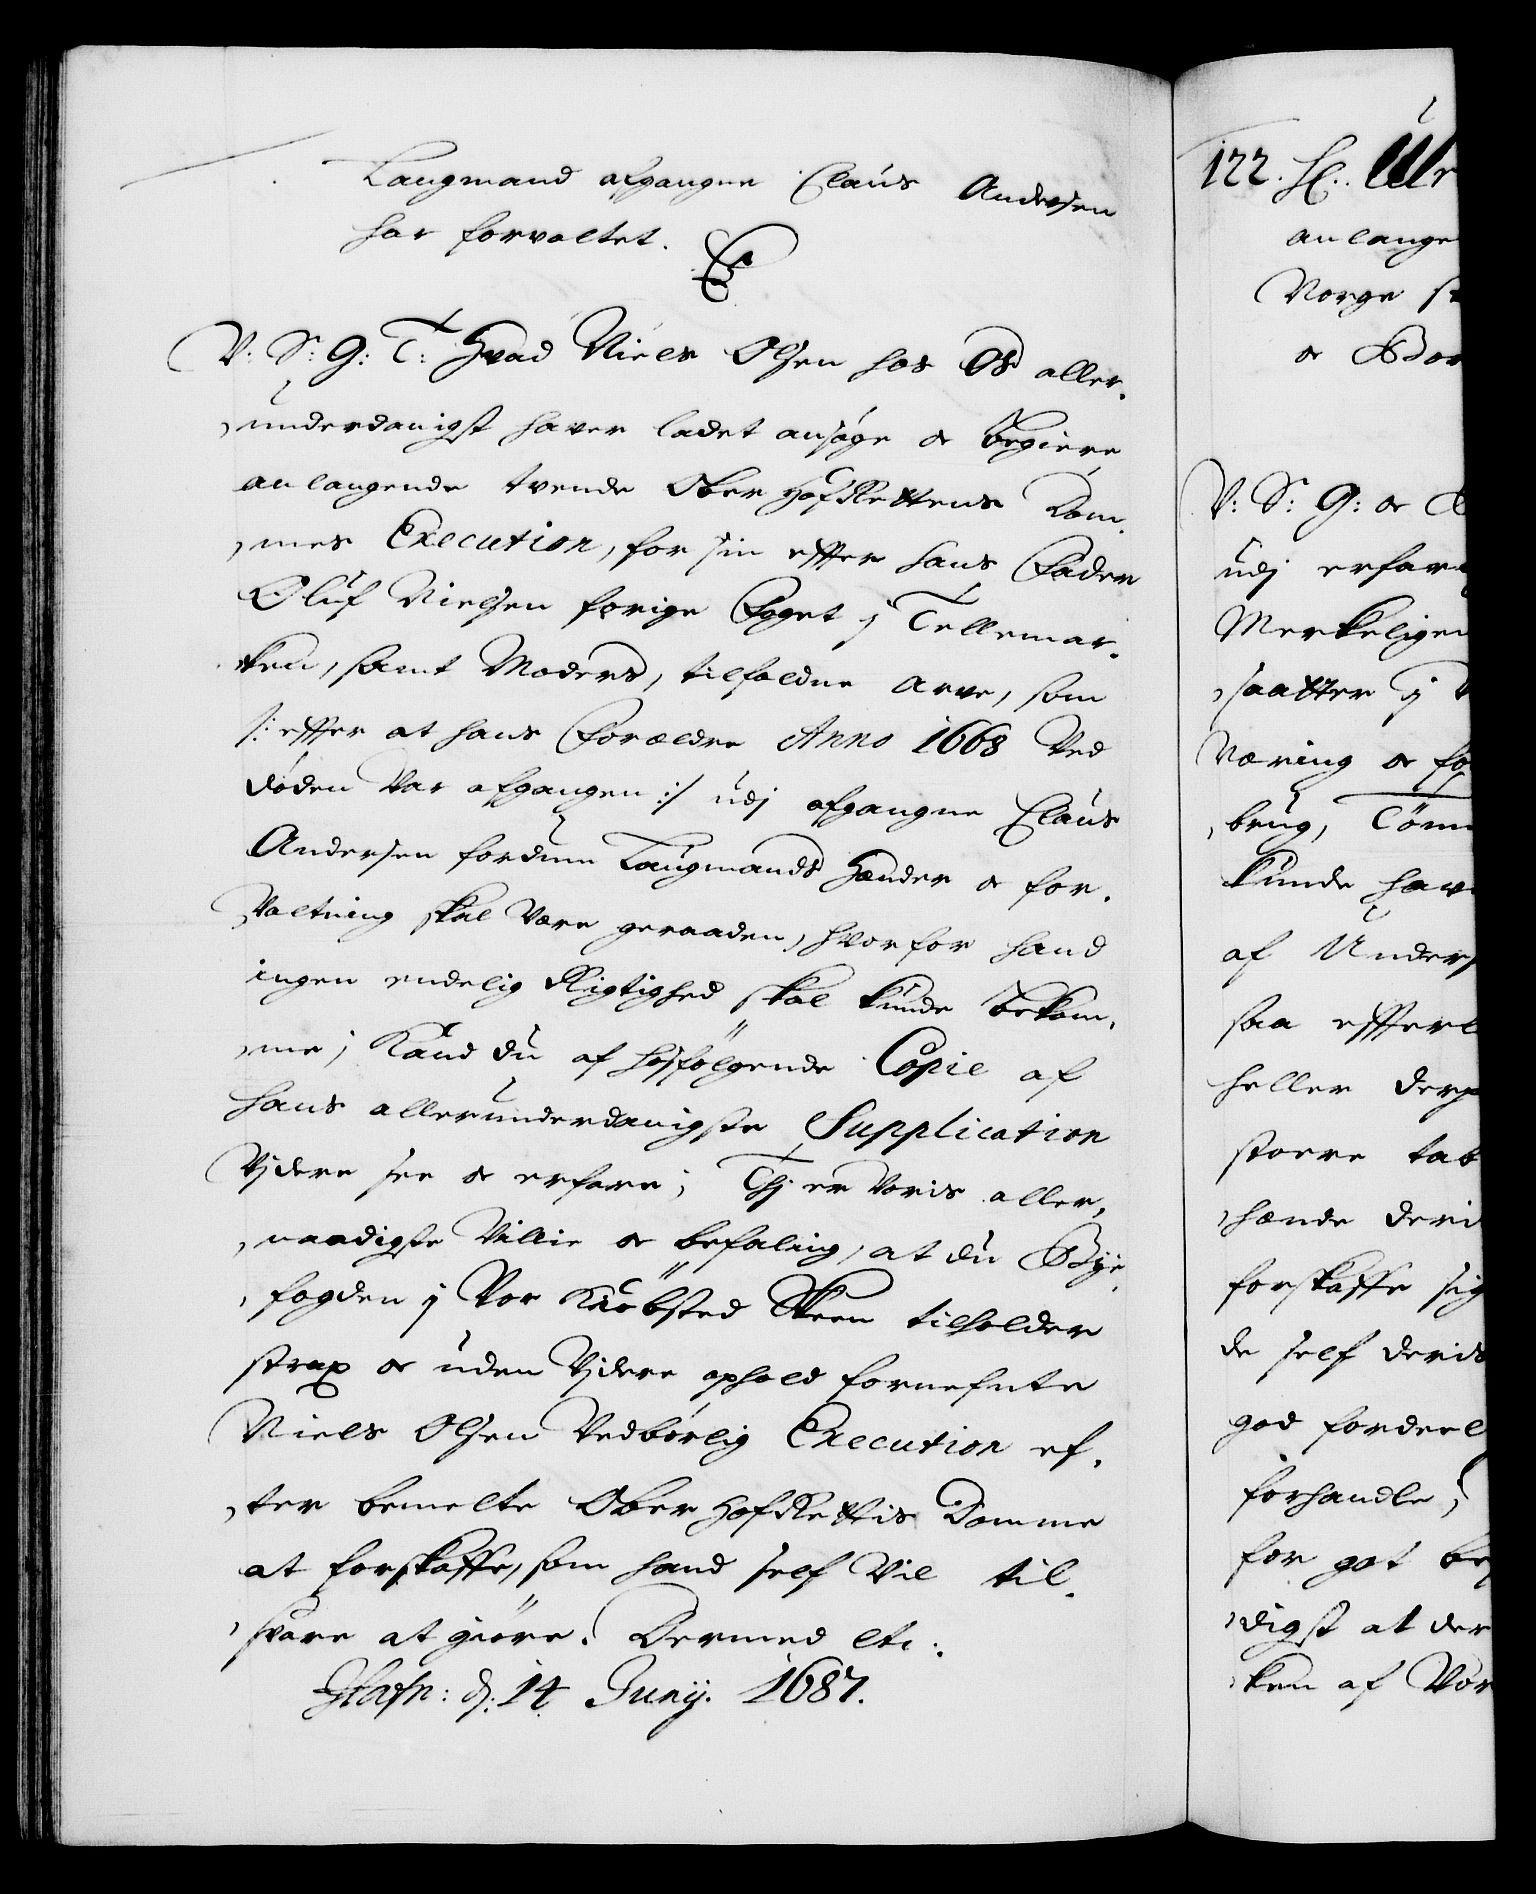 Laugmand afgangne Claus Andersen
har forvaltet.
V: S: G: T: Hvad Niels Olsen hos Os aller-
underdanigst haver ladet ansøge oc begiere,
anlangende tvende Ober Hof Rettens Dom-
mes Execution, for sin effter hans Fader
Oluf Nielsen forige Foget j Tellemar-
ken, samt Moders, tilfaldne Arve, som
/: effter at hans Forældre Anno 1668 Ved
døden Var afgangen :/ udj afgangne Claus
Andersen fordum Laugmands Hænder oc for-
Valtning skal Være geraaden, hvorfor hand
ingen endelig Rigtighed skal kunde bekom-
me; Kand du af hosfølgende Copie af
hans allerunderdanigste Supplication
Vjdere see oc erfare; Thj er Voris aller-
naadigste Villie oc befaling, at du Bye-
fogden j Vor Kiøbsted Skeen tilholder
strax oc uden Vjdere ophold fornefnte
Niels Olsen Vedbørlig Execution ef-
ter bemelte Ober Hof Rettis Domme
at forskaffe, som hand self Vil til-
svare at giøre. Dermed etc:
Hafn: d: 14 Junij. 1687.
122.
anlange
Norge
oc Bor
V: S: G: oc
udj erfar
Merkeligen
saatter j
Næring oc fo
brug, Tøm
kunde hav
af Unders
saa effter
heller der
stoere tab
hænde deri
forskaffe sig
de self deris
god fordeel
forhandle;
for got be
digst at der
ken af Vor